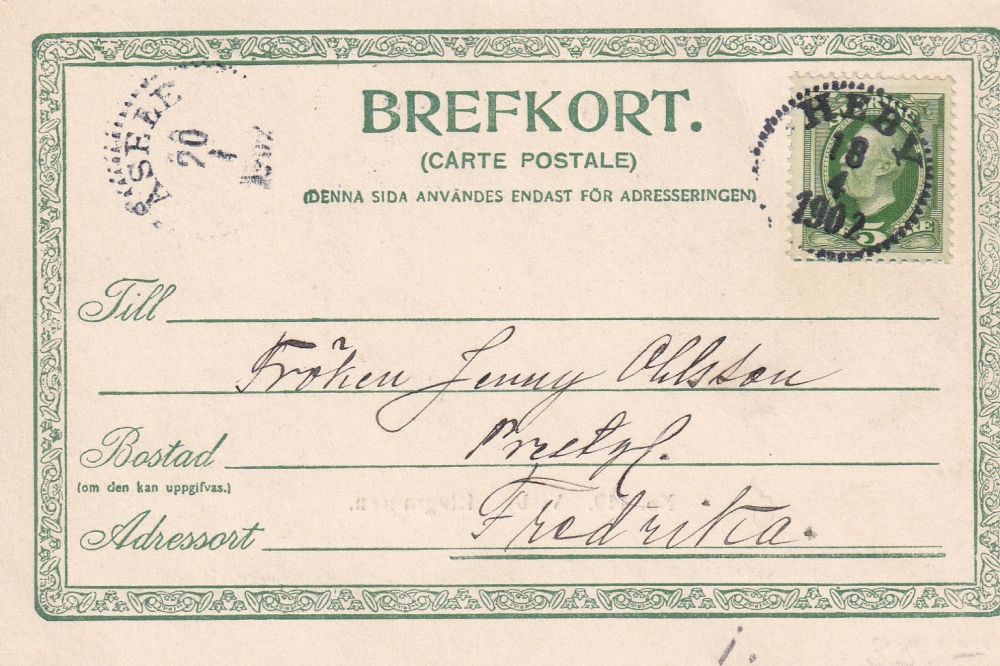 BREFKORT.
(CARTE POSTALE)
(DENNA SIDA ANVÄNDES ENDAST FÖR ADRESSERINGEN)
ÅSELE
20
1
HEBY
18
1
1902
5
Till
Fröken Jenny Ohlsson
Bostad
Prestg.
(om den kan uppgifvas.)
Adressort
Fredrika.